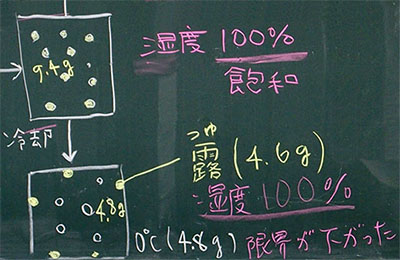 9.4g
湿度 100%
飽和
冷却
つゆ
露 (4.6g)
4.8g
湿度 100%
0℃ (4.8g) 限界が下がった